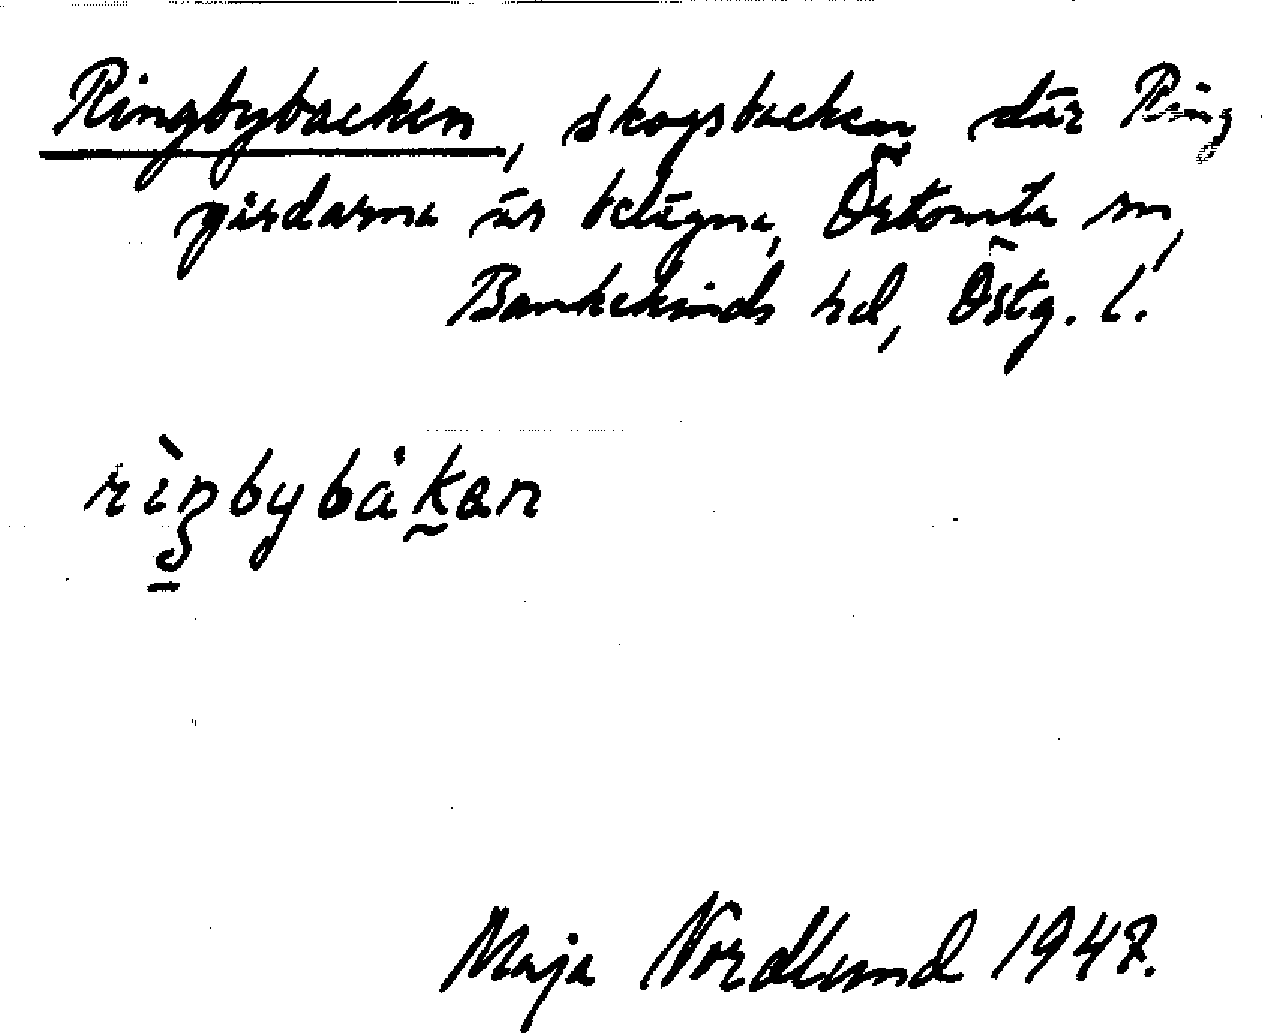 Ringbybacken, skogsbacken där Ring
gårdarna är belägna, Örtomta sn,
Bankekinds hd, Östg. l.
rìŋbybåkan
Maja Nordlund 1947.